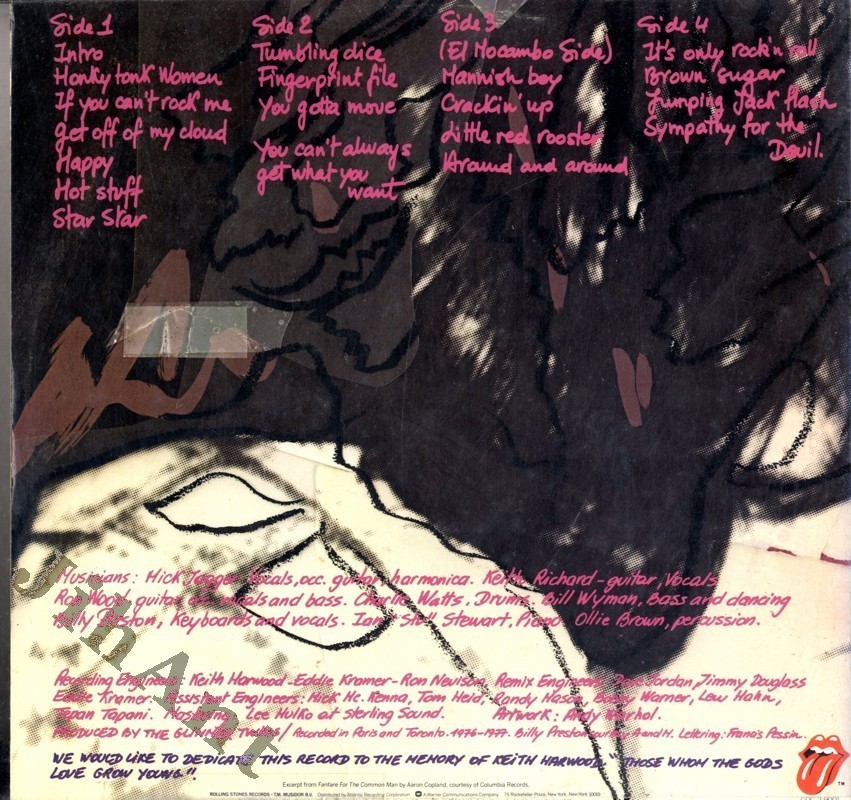 Side 1
Intro
Honky tonk Women
If you can't rock me
get off of my cloud
Happy
Hot stuff
Star Star
Side 2
Tumbling dice
Fingerprint file
You gotta move
You can't always
get what you
want
Side 3
(El Mocambo Side)
Mannish boy
Crackin' up
Little red rooster
Around and around
Side 4
It's only rock'n roll
Brown sugar
Jumping Jack flash
Sympathy for the
Devil.
Musicians: Mick Jagger Vocals, acc. guitar, harmonica. Keith Richard - guitar, Vocals
Ron Wood, guitar vocals and bass. Charlie Watts, Drums. Bill Wyman, Bass and dancing
Billy Preston, Keyboards and vocals. Ian Stewart, Piano Ollie Brown, percussion.
Recording Engineers: Keith Harwood - Eddie Kramer - Ron Nevison, Remix Engineers Dave Jordan, Jimmy Douglass
Eddie Kramer. Assistent Engineers: Mick Mc. Kenna, Tom Heid, Randy Mason, Bobby Warner, Lew Hahn,
Tapani. Mastering Lee Hulko at Sterling Sound. Artwork: Andy Warhol.
PRODUCED BY THE GLIMMER TWINS / Recorded in Paris and Toronto. 1976-1977. Billy Preston courtesy A and M. Lettering: Francis Pessin.
WE WOULD LIKE TO DEDICATE THIS RECORD TO THE MEMORY OF KEITH HARWOOD. "THOSE WHOM THE GODS
LOVE GROW YOUNG".
Excerpt from Fanfare For The Common Man by Aaron Copland, courtesy of Columbia Records.
ROLLING STONES RECORDS - T.M. MUSIDOR B.V. Distributed by Atlantic Recording Corporation A Warner Communications Company 75 Rockefeller Plaza, New York, New York 10019
TM
JanAnt